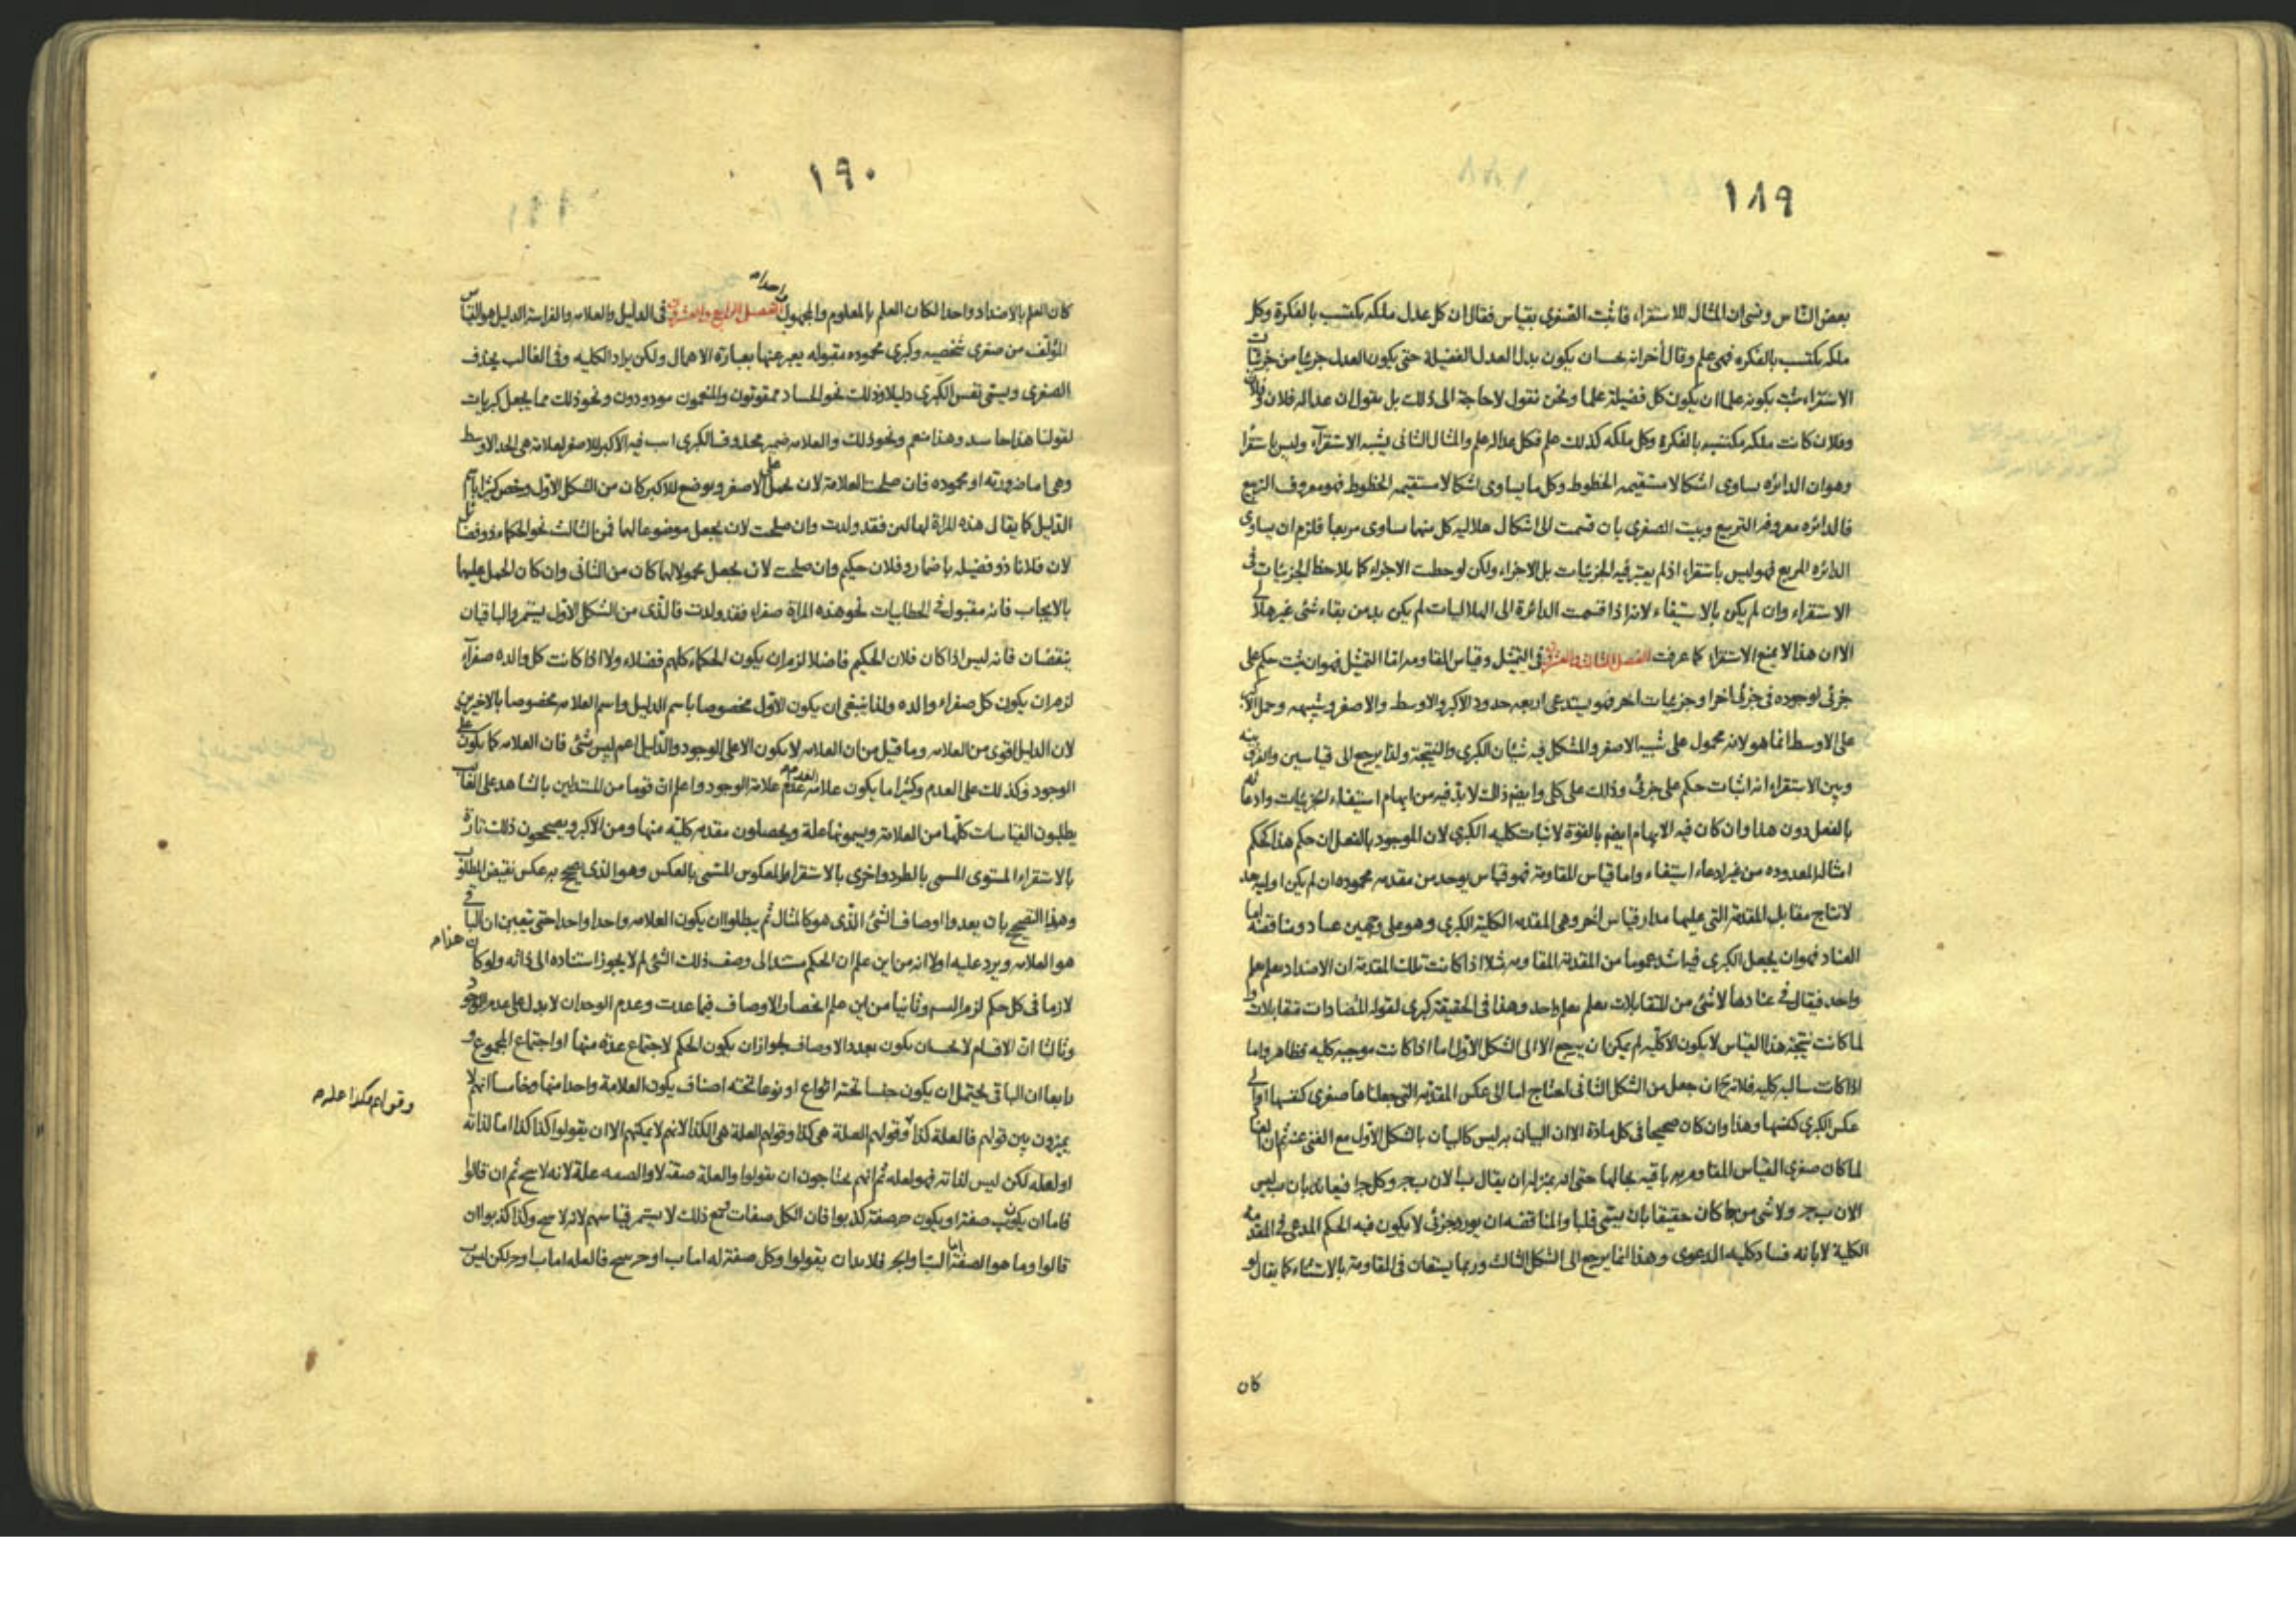 ١٨٩
بعض الناس ونسى ان المثال للاستقراء فاثبت الصغرى بقياس فقال ان كل عدل ملكه يكتسب بالفكرة وكل
ملكه يكتسب بالفكره فهى علم وقال آخر انه يكون بدل العدل الفضيلة حتى يكون العدل جزئيا من جزئيات
الاستقراء يثبت بكونه علما ان يكون كل فضيلة علما ونحن نقول لا حاجة الى ذلك بل نقول ان عداله فلان وفلان
وفلان كانت ملكه مكتسبه بالفكرة وكل ملكه كذلك علم فكل عداله علم والمثال الثانى يشبه الاستقرآء وليس باستقرا
وهو ان الدائره يساوى اشكالا مستقيمه الخطوط وكل ما يساوى اشكالا مستقيمه الخطوط فهو معروف التربيع
فالدائره معروفه التربيع وبيت الصغرى بان قسمت الى اشكال هلاليه كل منها ساوى مربعا فلزم ان يساوى
الدائره المربع فهو ليس باستقراء اذ لم يعتبر فيه الجزئيات بل الاجزاء ولكن لوحظت الاجزاء كما يلاحظ الجزئيات فى
الاستقراء وان لم يكن بالاستيفاء لانه اذا قسمت الدائرة الى الهلاليات لم يكن بد من بقاء شئ غير هلالى
الا ان هذا لا يمنع الاستقراء كما عرفت الفصل الثالث والعشرون فى التمثيل وقياس المقاومه اما التمثيل فهو ان يثبت حكم على
جزئى لوجوده فى جزئى اخر او جزئيات اخر فهو يستدعى اربعه حدود الاكبر والاوسط والاصغر وشبيهه وحمل الاكبر
على الاوسط انما هو لانه محمول على شبيه الاصغر والمشكل فيه شيئان الكبرى والنتيجة ولذا يرجع الى قياسين والفرق بينه
وبين الاستقراء انه اثبات حكم على جزئى وذلك على كلى وايضا ذاك لا بد فيه من ايهام استيفاء الجزئيات وادعائه
بالفعل دون هذا وان كان فيه الايهام ايضا بالقوة لاثبات كليه الكبرى لان الموجود بالفعل ان حكم هذا حكم
امثاله المعدوده من غير ادعاء استيفاء واما قياس المقاومة فهو قياس يوجد من مقدمه محموده ان لم يكن اوليه
لانتاج مقابل المقدمة التى عليها مدار قياس اخر وهى المقدمه الكلية الكبرى وهو على وجهين عناد ومناقضة اما
العناد فهو ان يجعل الكبرى فيه اشد عموما من المقدمة المقاومه مثلا اذا كانت تلك المقدمة ان الاضداد يعلم بعلم
واحد فيقال فى عنادها لا شئ من المتقابلات يعلم بعلم واحد وهذا فى الحقيقة كبرى لقوله المتضادات متقابلات و
لما كانت نتيجة هذا القياس لا يكون الا كليه لم يمكن ان يرجع الا الى الشكل الاول اما اذا كانت موجبه كليه فظاهر واما
اذا كانت سالبه كليه فلانه جعل من الشكل الثانى احتاج اما الى عكس المقدمة التى جعلناها صغرى كنفسها او الى
عكس الكبرى كنفسها وهذا وان كان صحيحا فى كل مادة الا ان البيان به ليس كالبيان بالشكل الاول مع الغنى عنه ثم ان
لما كان صغرى القياس المقاوم به باقيه بحالها حتى انه بمنزله ان يقال ب ا لان ب ج وكل ج ا فيعاند بان ب ليس
ا لان ب ج ولا شئ من ج ا كان حقيقا بان يسمى قلبا والمناقضه ان يورد جزئى لا يكون فيه الحكم المدعى فى المقدمه
الكلية لابانه فساد كليه الدعوى وهذا انما يرجع الى الشكل الثالث وربما يستعان فى المقاومة بالاستثناء كما يقال لو
كان
١٩٠
كان العلم بالاضداد واحدا لكان العلم بالمعلوم والمجهول واحدا الفصل الرابع والعشرون فى الدليل والعلامه والفراسة الدليل هو القياس
المؤلف من صغرى شخصيه وكبرى محموده مقبوله يعبر عنها بعبارة الاهمال ولكن يراد الكليه وفى الغالب يحذف
الصغرى ويسمى نفس الكبرى دليلا وذلك نحو الحساد ممقوتون والمنعمون مودودون ونحو ذلك مما يجعل كبريات
لقولنا هذا حاسد وهذا منعم ونحو ذلك والعلامه ضمير محذوف الكبرى اثبت فيه الاكبر للاصغر لعلامة هى الحد الاوسط
وهى اما ضرورية او محموده فان صلحت العلامة لان تحمل على الاصغر ويوضع للاكبر كان من الشكل الاول وخص كثيرا باسم
الدليل كما يقال هذه المرأة لها لبن فقد ولدت وان صلحت لان يجعل موضوعا لهما فمن الثالث نحو الحكماء ذوو فضائل
لان فلانا ذو فضيله باضمار وفلان حكيم وان صلحت لان يجعل محمولا لهما كان من الثانى وان كان الحمل عليهما
بالايجاب فانه مقبول فى الخطابيات نحو هذه المراة صفراء فقد ولدت فالذى من الشكل الاول يستمر والباقيان
ينقضان فانه ليس اذا كان فلان الحكيم فاضلا لزم ان يكون الحكماء كلهم فضلاء ولا اذا كانت كل والده صفرآء
لزم ان يكون كل صفراء والده ولذا ينبغى ان يكون الاول مخصوصا باسم الدليل واسم العلامه مخصوصا بالاخيرين
لان الدليل اقوى من العلامه وما قيل من ان العلامه لا يكون الا على الوجود والدليل اعم ليس بشئ فان العلامه كما يكون على
الوجود وكذلك على العدم وكثيرا ما يكون علامه عدم علامة الوجود واعلم ان قوما من المستدلين بالشاهد على الغائب
يطلبون القياسات كلها من العلامة ويسمونها علة ويحصلون مقدمه كليه منها ومن الاكبر ويصححون ذلك تارة
بالاستقراء المستوى المسمى بالطرد واخرى بالاستقراء المعكوس المسمى بالعكس وهو الذى يصحح به عكس نقيض المطلوب
وهذا التصحيح بان يعدوا اوصاف الشئ الذى هو كالمثال ثم يبطلوا ان يكون العلامه واحدا واحدا حتى يتعين ان الباقى
هو العلامه ويرد عليه اولا انه من اين علم ان الحكم مستند الى وصف ذلك الشئ لم لا يجوز استناده الى ذاته ولو كان هذا
لازما فى كل حكم لزم التسلسل وثانيا من اين علم انحصار الاوصاف فيما عدت وعدم الوجدان لا يدل على عدم الوجود
وثالثا ان الاقسام لا يجب ان يكون بعدد الاوصاف لجواز ان يكون الحكم لاجتماع عدة منها او اجتماع المجموع و
رابعا ان الباقى يحتمل ان يكون جنسا تحته انواع او نوعا تحته اصناف يكون العلامة واحدا منها وخامسا انهم لا
يميزون بين قولهم فالعلة كذا وقولهم العلة هى كذا وقولهم العلة هى الكذا لانهم لا يمكنهم الا ان يقولوا كذا كذا اما لذاته
او لعله لكن ليس لذاته فهو لعله ثم انهم يحتاجون ان يقولوا والعلة صفة لا والصفه علة لانه لا ينتج ثم ان قالوا
فاما ان يكون ب صفة او يكون ج صفة كذبوا فان الكل صفات ومع ذلك لا يستمر قياسهم لانه لا ينتج وكذا كذبوا ان
قالوا وما هو الصفة اما الباء والجر فلا بد ان يقولوا وكل صفة له اما ب او ج ينتج فالعله اما ب او ج لكن ليس ب
وقولهم كذا علة